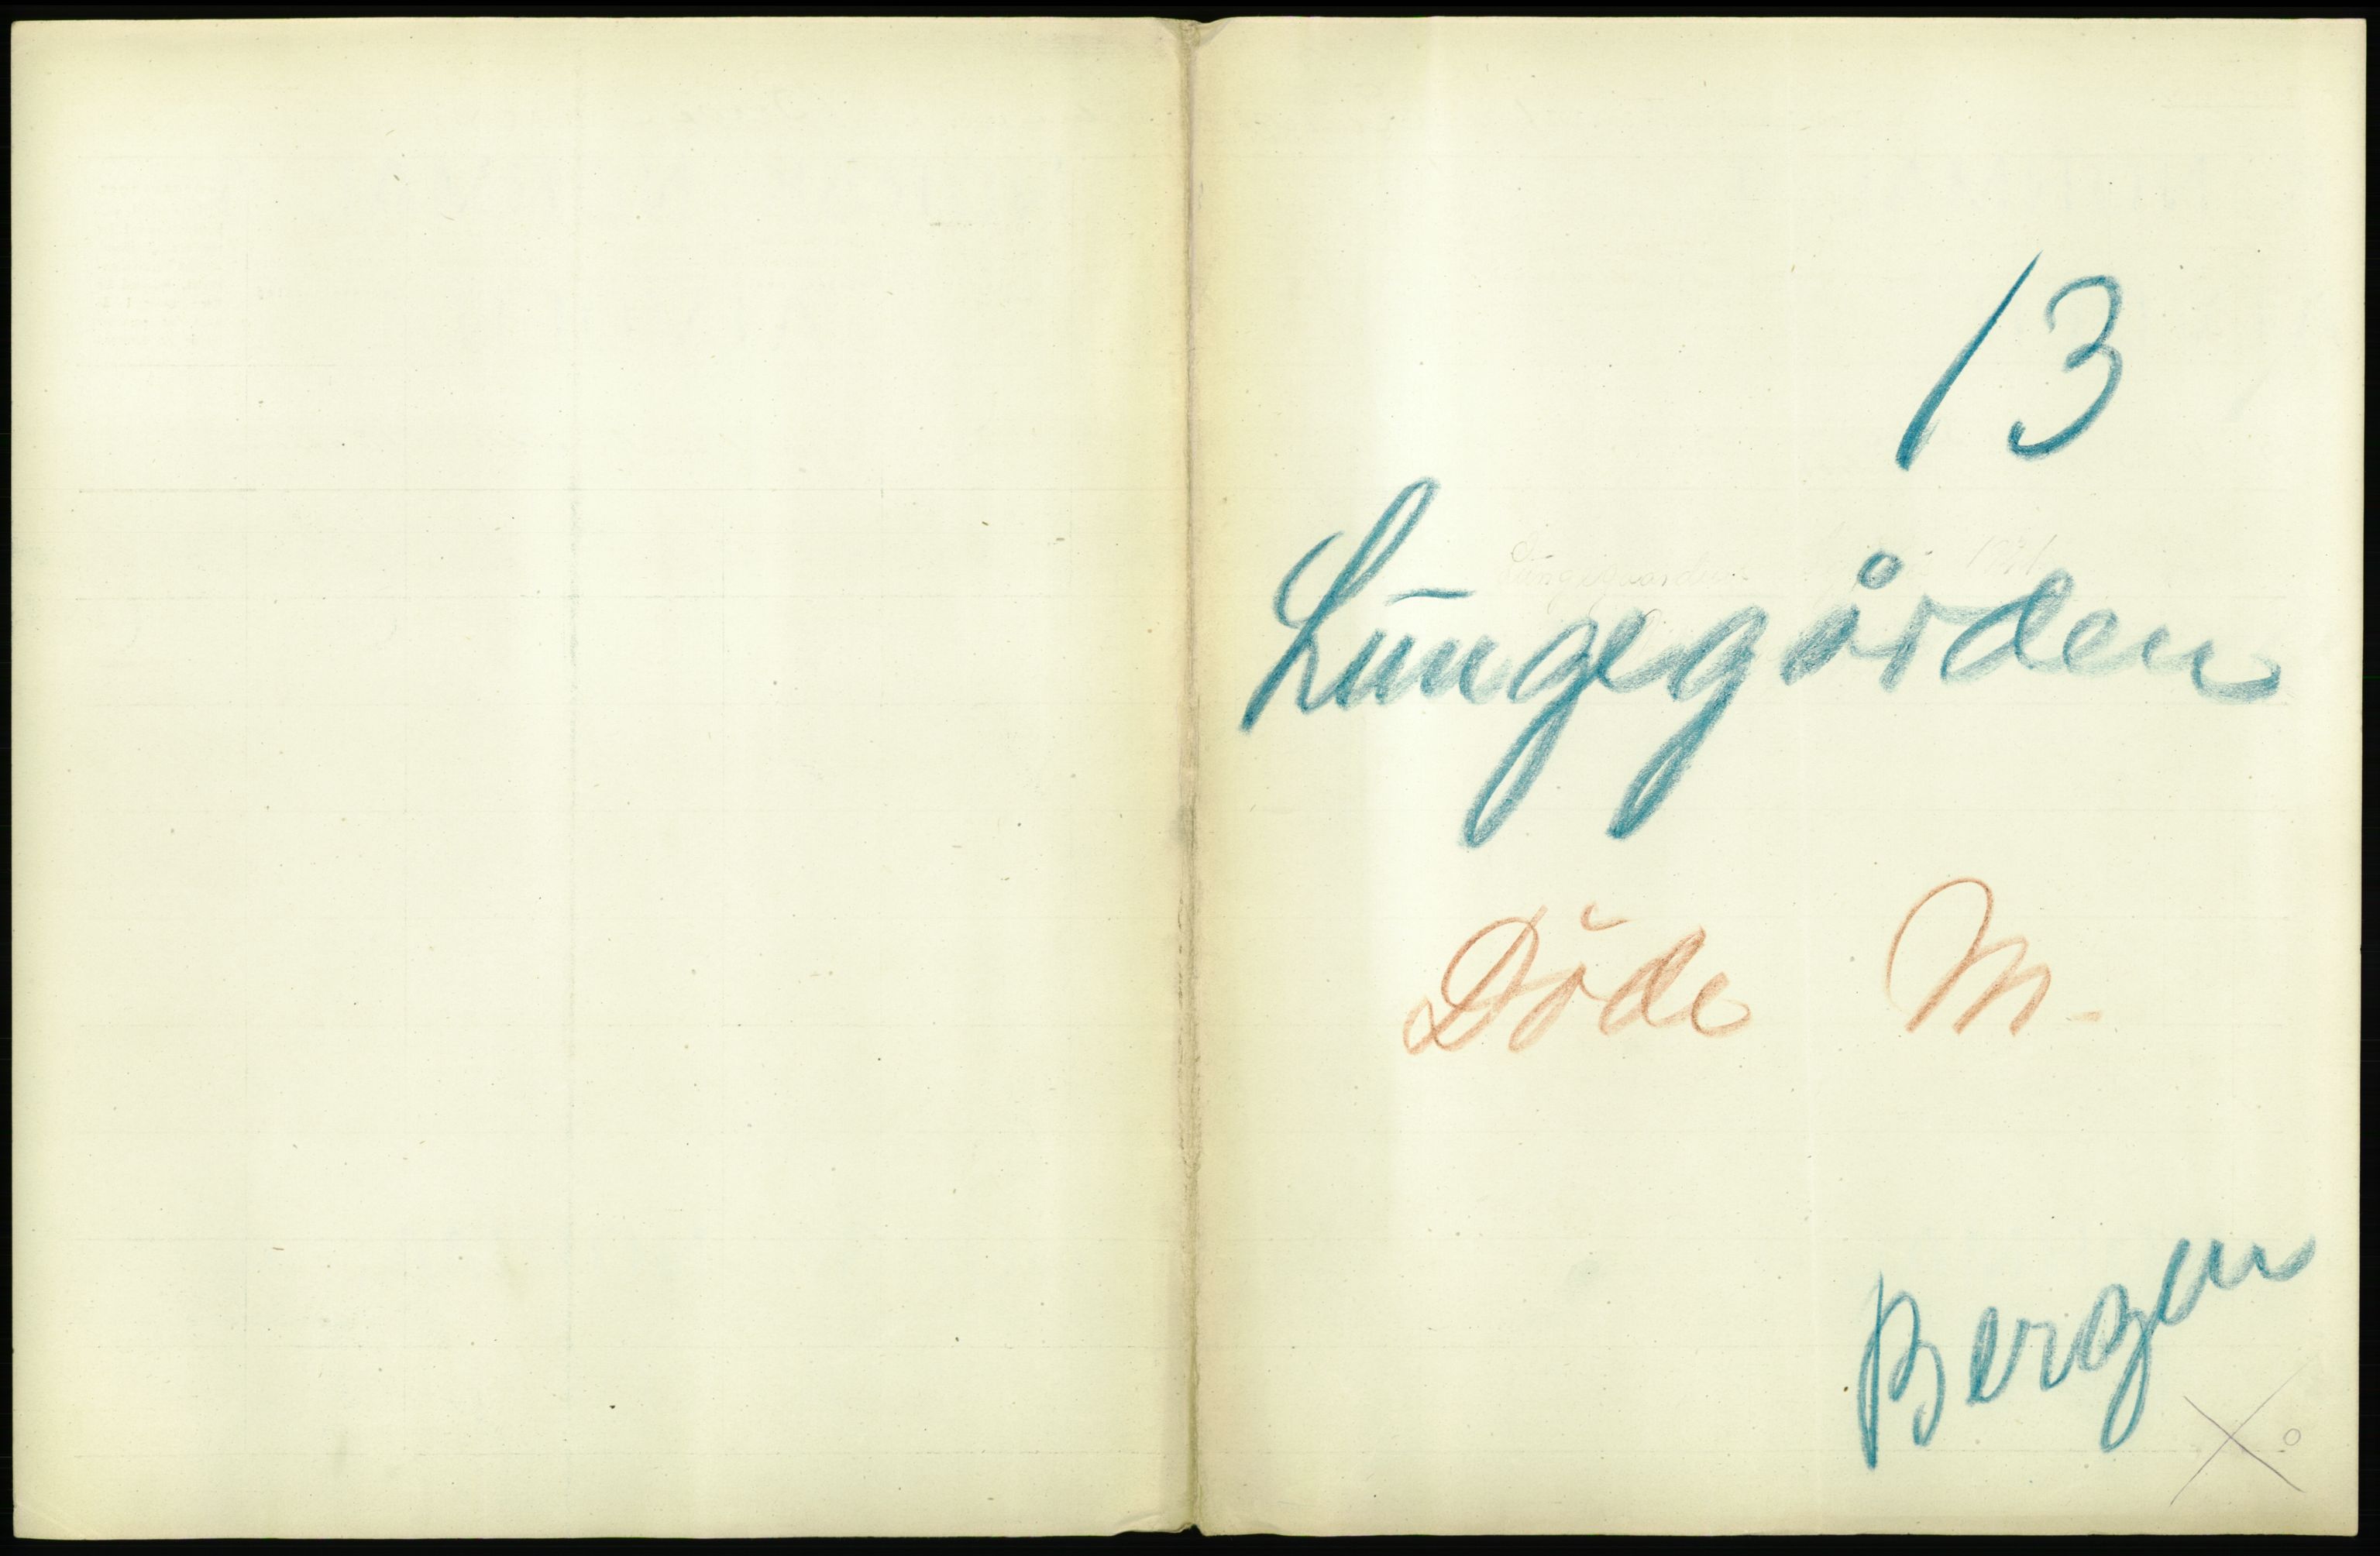 13
Lungegården
Döde M.
Bergen